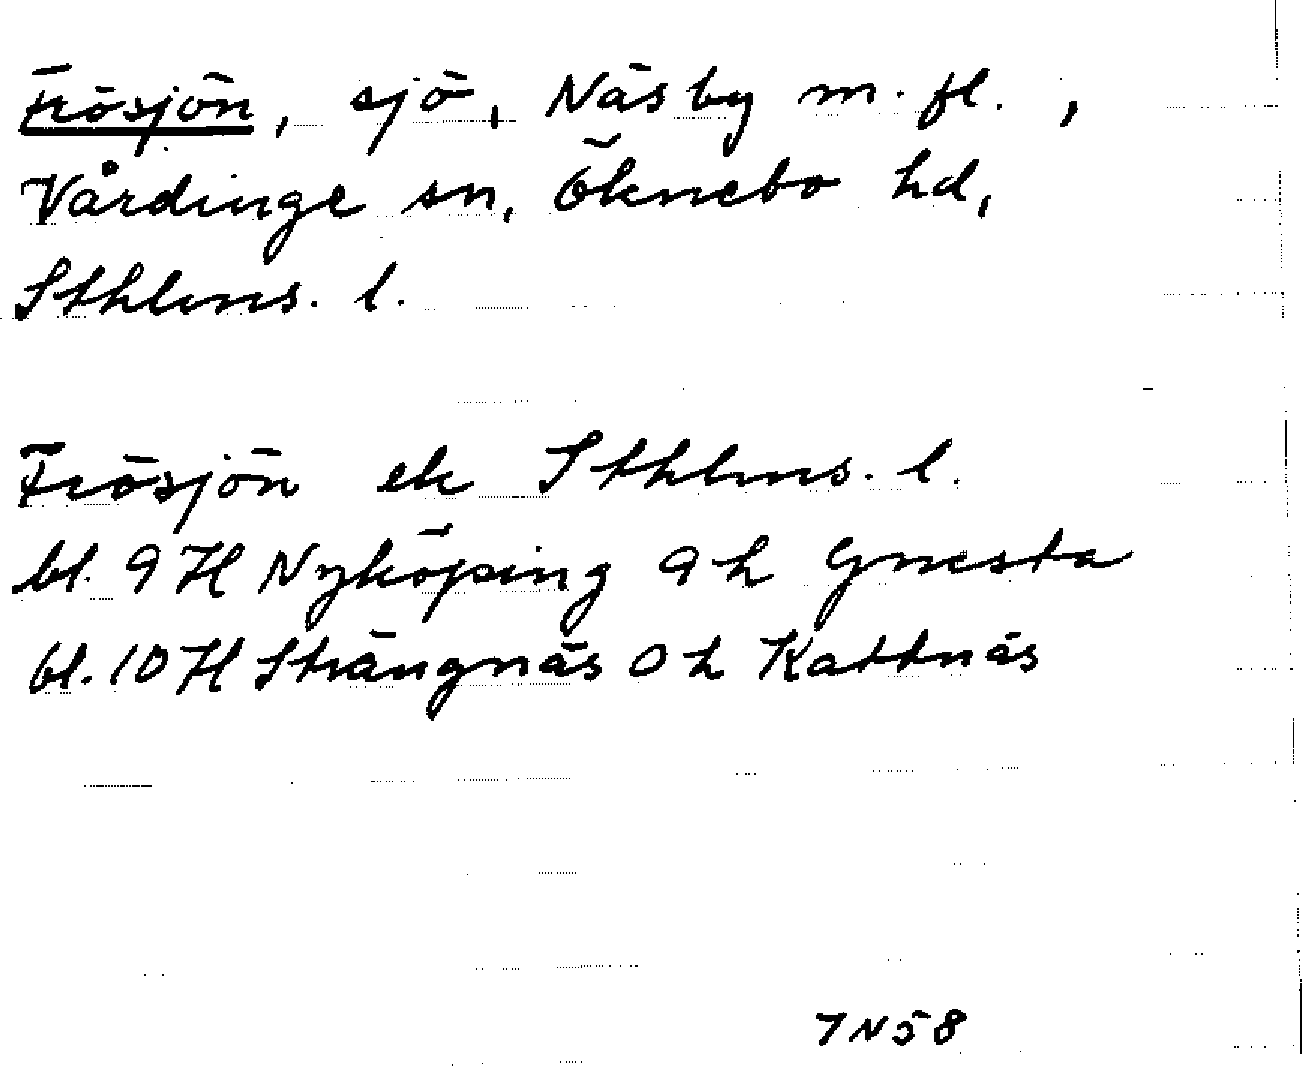 Frösjön, sjö, Näsby m. fl.,
Vårdinge sn, Öknebo hd,
Sthlms. l.
Frösjön ek Sthlms. l.
bl. 9H Nyköping 9h Gnesta
bl. 10H Strängnäs 0h Kattnäs
7N58